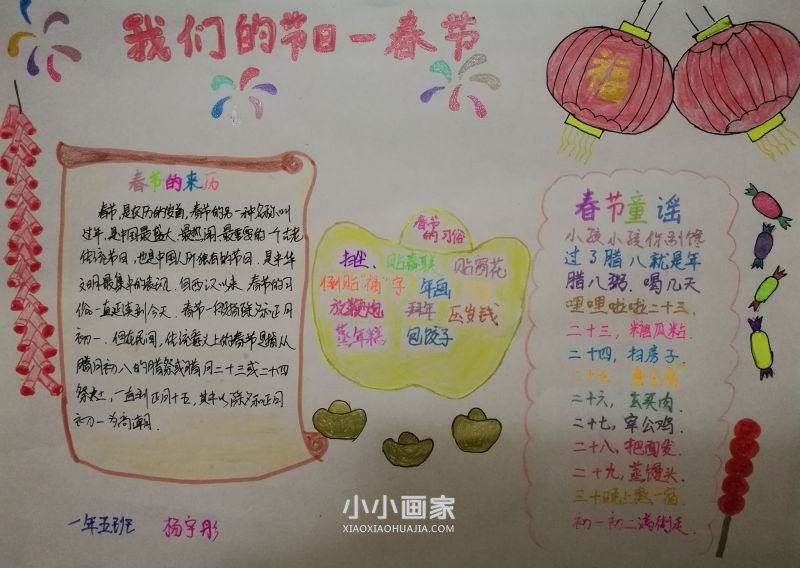 我们的节日一春节
福
春节的来历
春节,是农历的岁首,春节的另一种名称叫
过年,是中国最盛大、最热闹、最重要的一个古老
传统节日,也是中国人所独有的节日.是中华
文明最集中的表现.自西汉以来,春节的习
俗一直延续到今天.春节一般指除夕和正月
初一.但在民间,传统意义上的春节是指从
腊月初八的腊祭或腊月二十三或二十四
祭灶,一直到正月十五,其中以除夕和正月
初一为高潮.
春节
的习俗
扫尘、贴春联 贴窗花
倒贴"福"字 年画
放鞭炮 拜年 压岁钱
蒸年糕 包饺子
春节童谣
小孩小孩你别馋
过了腊八就是年
腊八粥.喝几天
哩哩啦啦二十三.
二十三,糖瓜粘.
二十四,扫房子.
二十六,去买肉.
二十七,宰公鸡.
二十八,把面发.
二十九,蒸馒头.
三十晚上熬一宿.
初一初二满街走.
一年五班 杨宇彤
小小画家
XIAOXIAOHUAJIA.COM